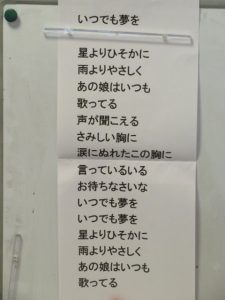 いつでも夢を
星よりひそかに
雨よりやさしく
あの娘はいつも
歌ってる
声が聞こえる
さみしい胸に
涙にぬれたこの胸に
言っているいる
お待ちなさいな
いつでも夢を
いつでも夢を
星よりひそかに
雨よりやさしく
あの娘はいつも
歌ってる